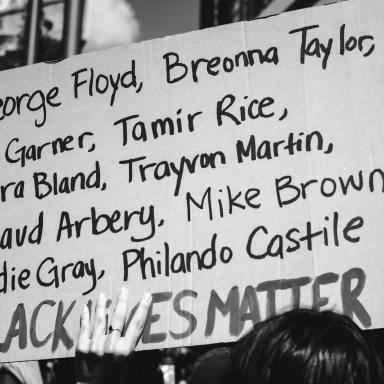 eorge Floyd, Breonna Taylor,
Garner, Tamir Rice,
ra Bland, Trayvon Martin,
aud Arbery, Mike Brown
die Gray, Philando Castile
LACK LIVES MATTER